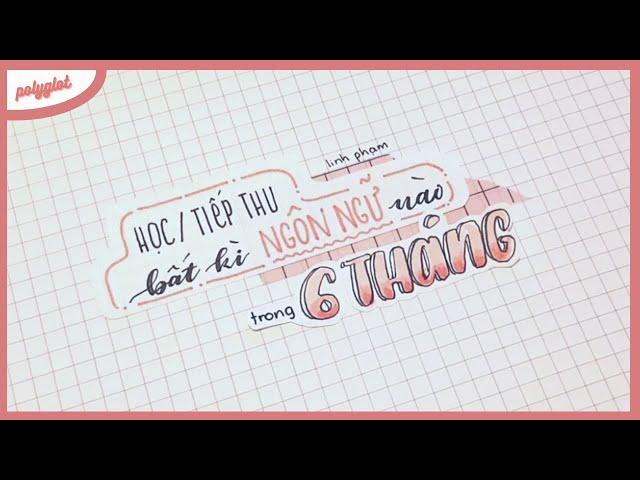 polyglot
linh pham
HỌC / TIẾP THU
bất kì NGÔN NGỮ nào
trong 6 THÁNG